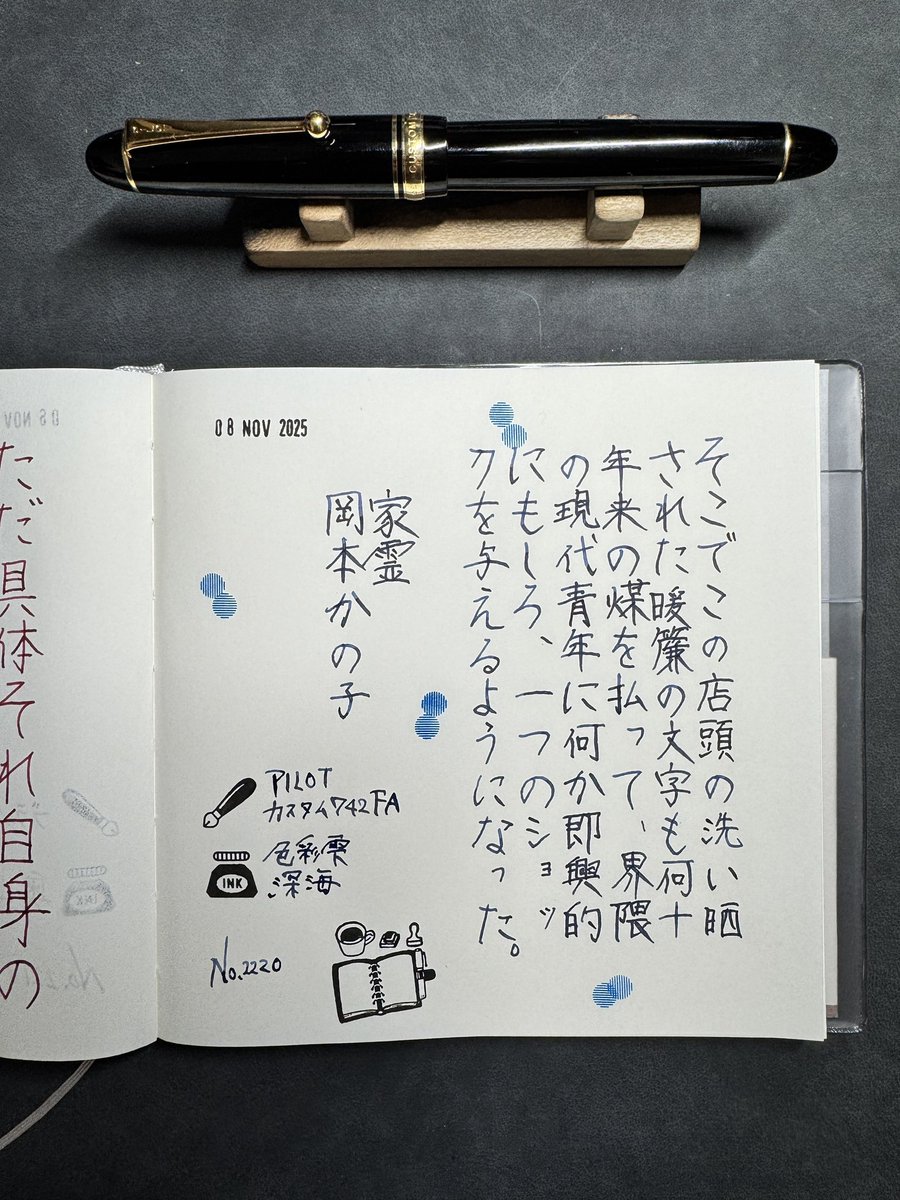 custom
08 NOV 2025
そこでこの店頭の洗い晒
された暖簾の文字も何十
年来の煤を払って、界隈
の現代青年に何か即興的
にもしろ、一つのショッ
クを与えるようになった。
家霊
岡本かの子
PILOT
カスタム742FA
色彩雫
深海
INK
No.2220
ただ具体それ自身の